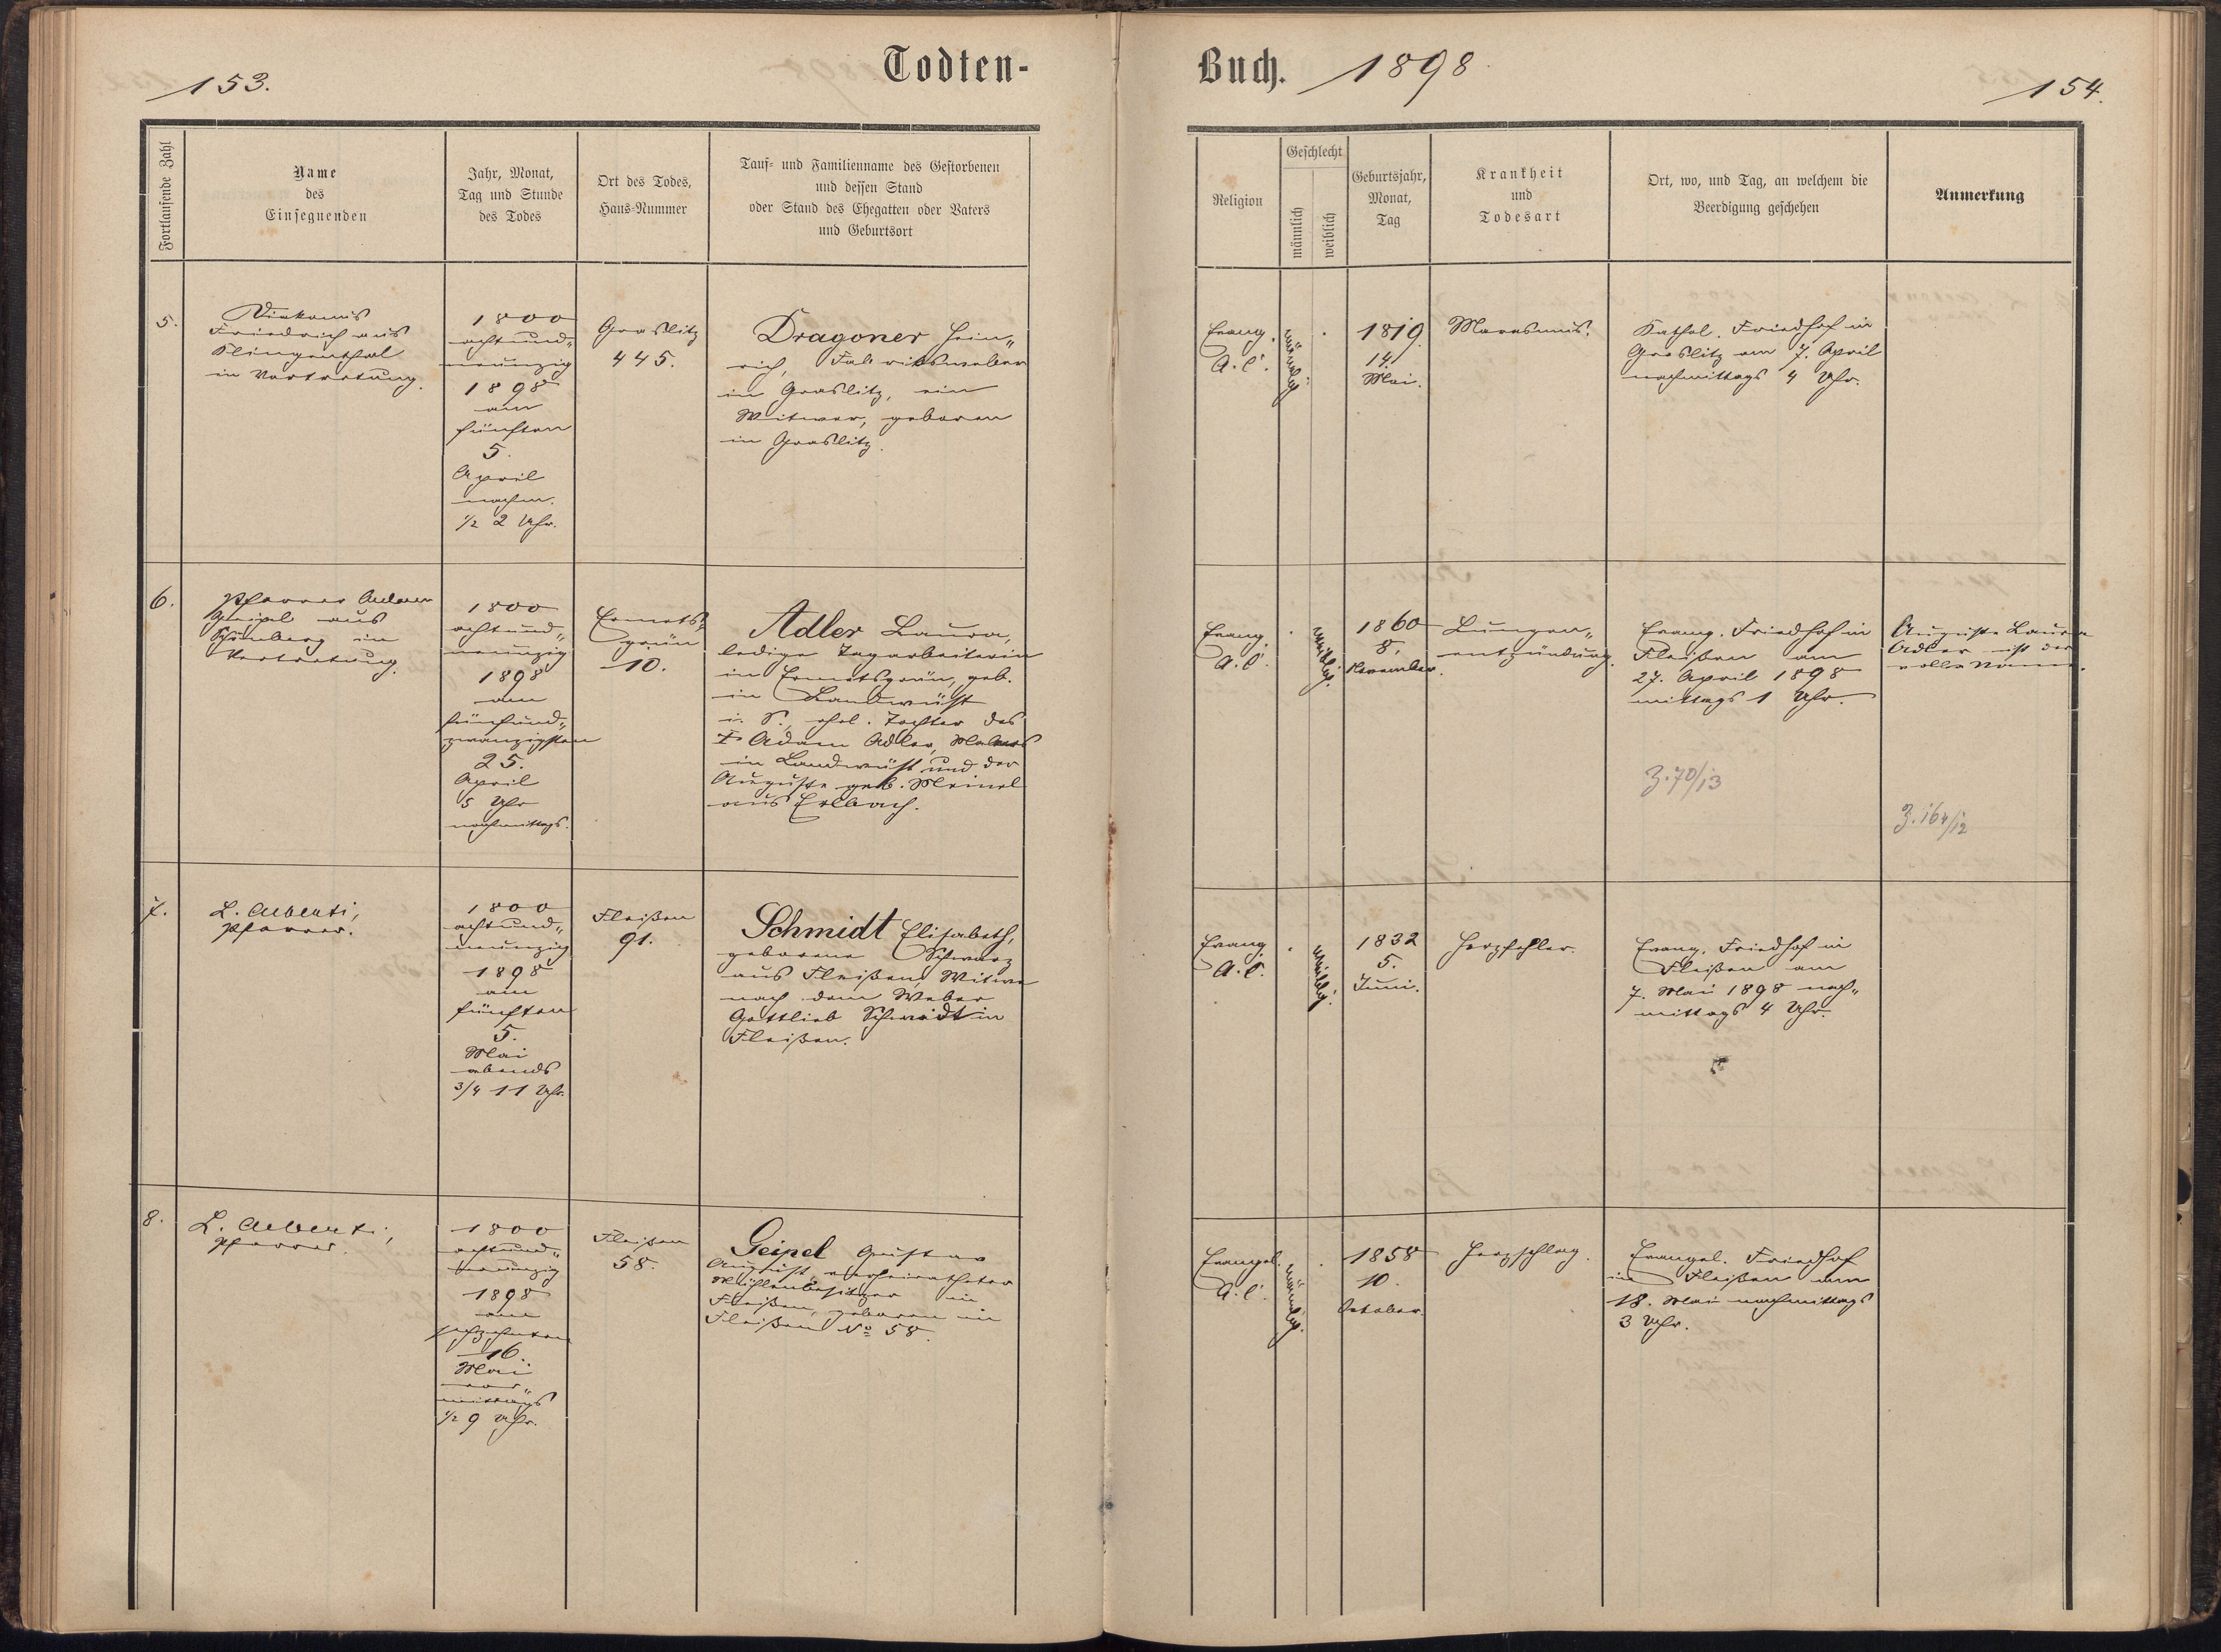 153.
Todten-
Fortlaufende Zahl
Name
des
Einsegnenden
Jahr, Monat,
Tag und Stunde
des Todes
Ort des Todes,
Haus-Nummer
Tauf- und Familienname des Gestorbenen
und dessen Stand
oder Stand des Ehegatten oder Vaters
und Geburtsort
5.
Diakonus
Friedrich aus
Klingenthal
in Vertretung.
1800
achtund„
neunzig
1898
am
fünften
5.
April
nachm.
1/2 2 Uhr.
Graslitz
445.
Dragoner Hein„
rich, Fabriksweber
in Graslitz, ein
Witwer, geboren
in Graslitz.
6.
Pfarrer
Geipel aus
Schönberg in
Vertretung.
1800
achtund„
neunzig
1898
am
fünfund„
zwanzigsten
25.
April
5 Uhr
nachmittags.
Ermets„
grün
10.
Adler Laura,
ledige Tagarbeiterin
in Ermetsgrün, geb.
in Landwüst
i. S., ehel. Tochter des
† Adam Adler,
in Landwüst und der
Auguste geb. Meinel
aus Erlbach.
7.
L. Alberti,
Pfarrer.
1800
achtund„
neunzig
1898
am
fünften
5.
Mai
abends
3/4 11 Uhr.
Fleißen
91.
Schmidt Elisabeth,
geborene Schwarz
aus Fleißen, Witwe
nach dem Weber
Gottlieb Schmidt in
Fleißen.
8.
L. Alberti,
Pfarrer.
1800
achtund„
neunzig
1898
am
sechzehnten
16.
Mai
vor„
mittags
1/2 9 Uhr.
Fleißen
58.
Geipel Gustav
August, verheiratheter
Mühlenbesitzer in
Fleißen, geboren in
Fleißen No 58.
Buch. 1898
154.
Religion
Geschlecht
männlich
weiblich
Geburtsjahr,
Monat,
Tag
Krankheit
und
Todesart
Ort, wo, und Tag, an welchem die
Beerdigung geschehen
Anmerkung
Evang.
A. C.
männlich
1819
14.
Mai.
Marasmus.
Kathol. Friedhof in
Graslitz am 7. April
nachmittags 4 Uhr.
Evang.
A. C.
weiblich.
1860
8.
November.
Lungen„
entzündung.
Evang. Friedhof in
Fleißen am
27. April 1898
mittags 1 Uhr.
Auguste Laura
Adler ist der
volle Name.
Z. 70/13
Z. 164/12
Evang.
A. C.
weiblich.
1832
5.
Juni.
Herzfehler.
Evang. Friedhof in
Fleißen am
7. Mai 1898 nach„
mittags 4 Uhr.
Evangel.
A. C.
männlich.
1858
10.
October.
Herzschlag.
Evangel. Friedhof
in Fleißen am
18. Mai nachmittags
3 Uhr.